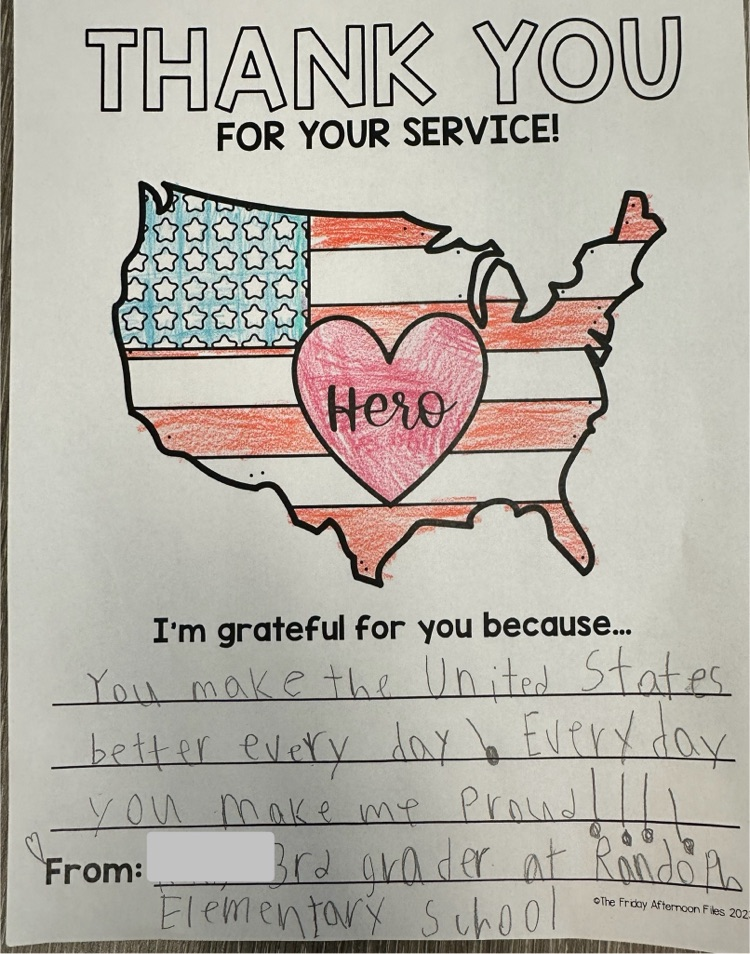 THANK YOU
FOR YOUR SERVICE!
Hero
I'm grateful for you because...
You make the United States
better every day! Every day
you make me Proud!!!!
From: 3rd grader at Randolph
Elementary School
©The Friday Afternoon Files